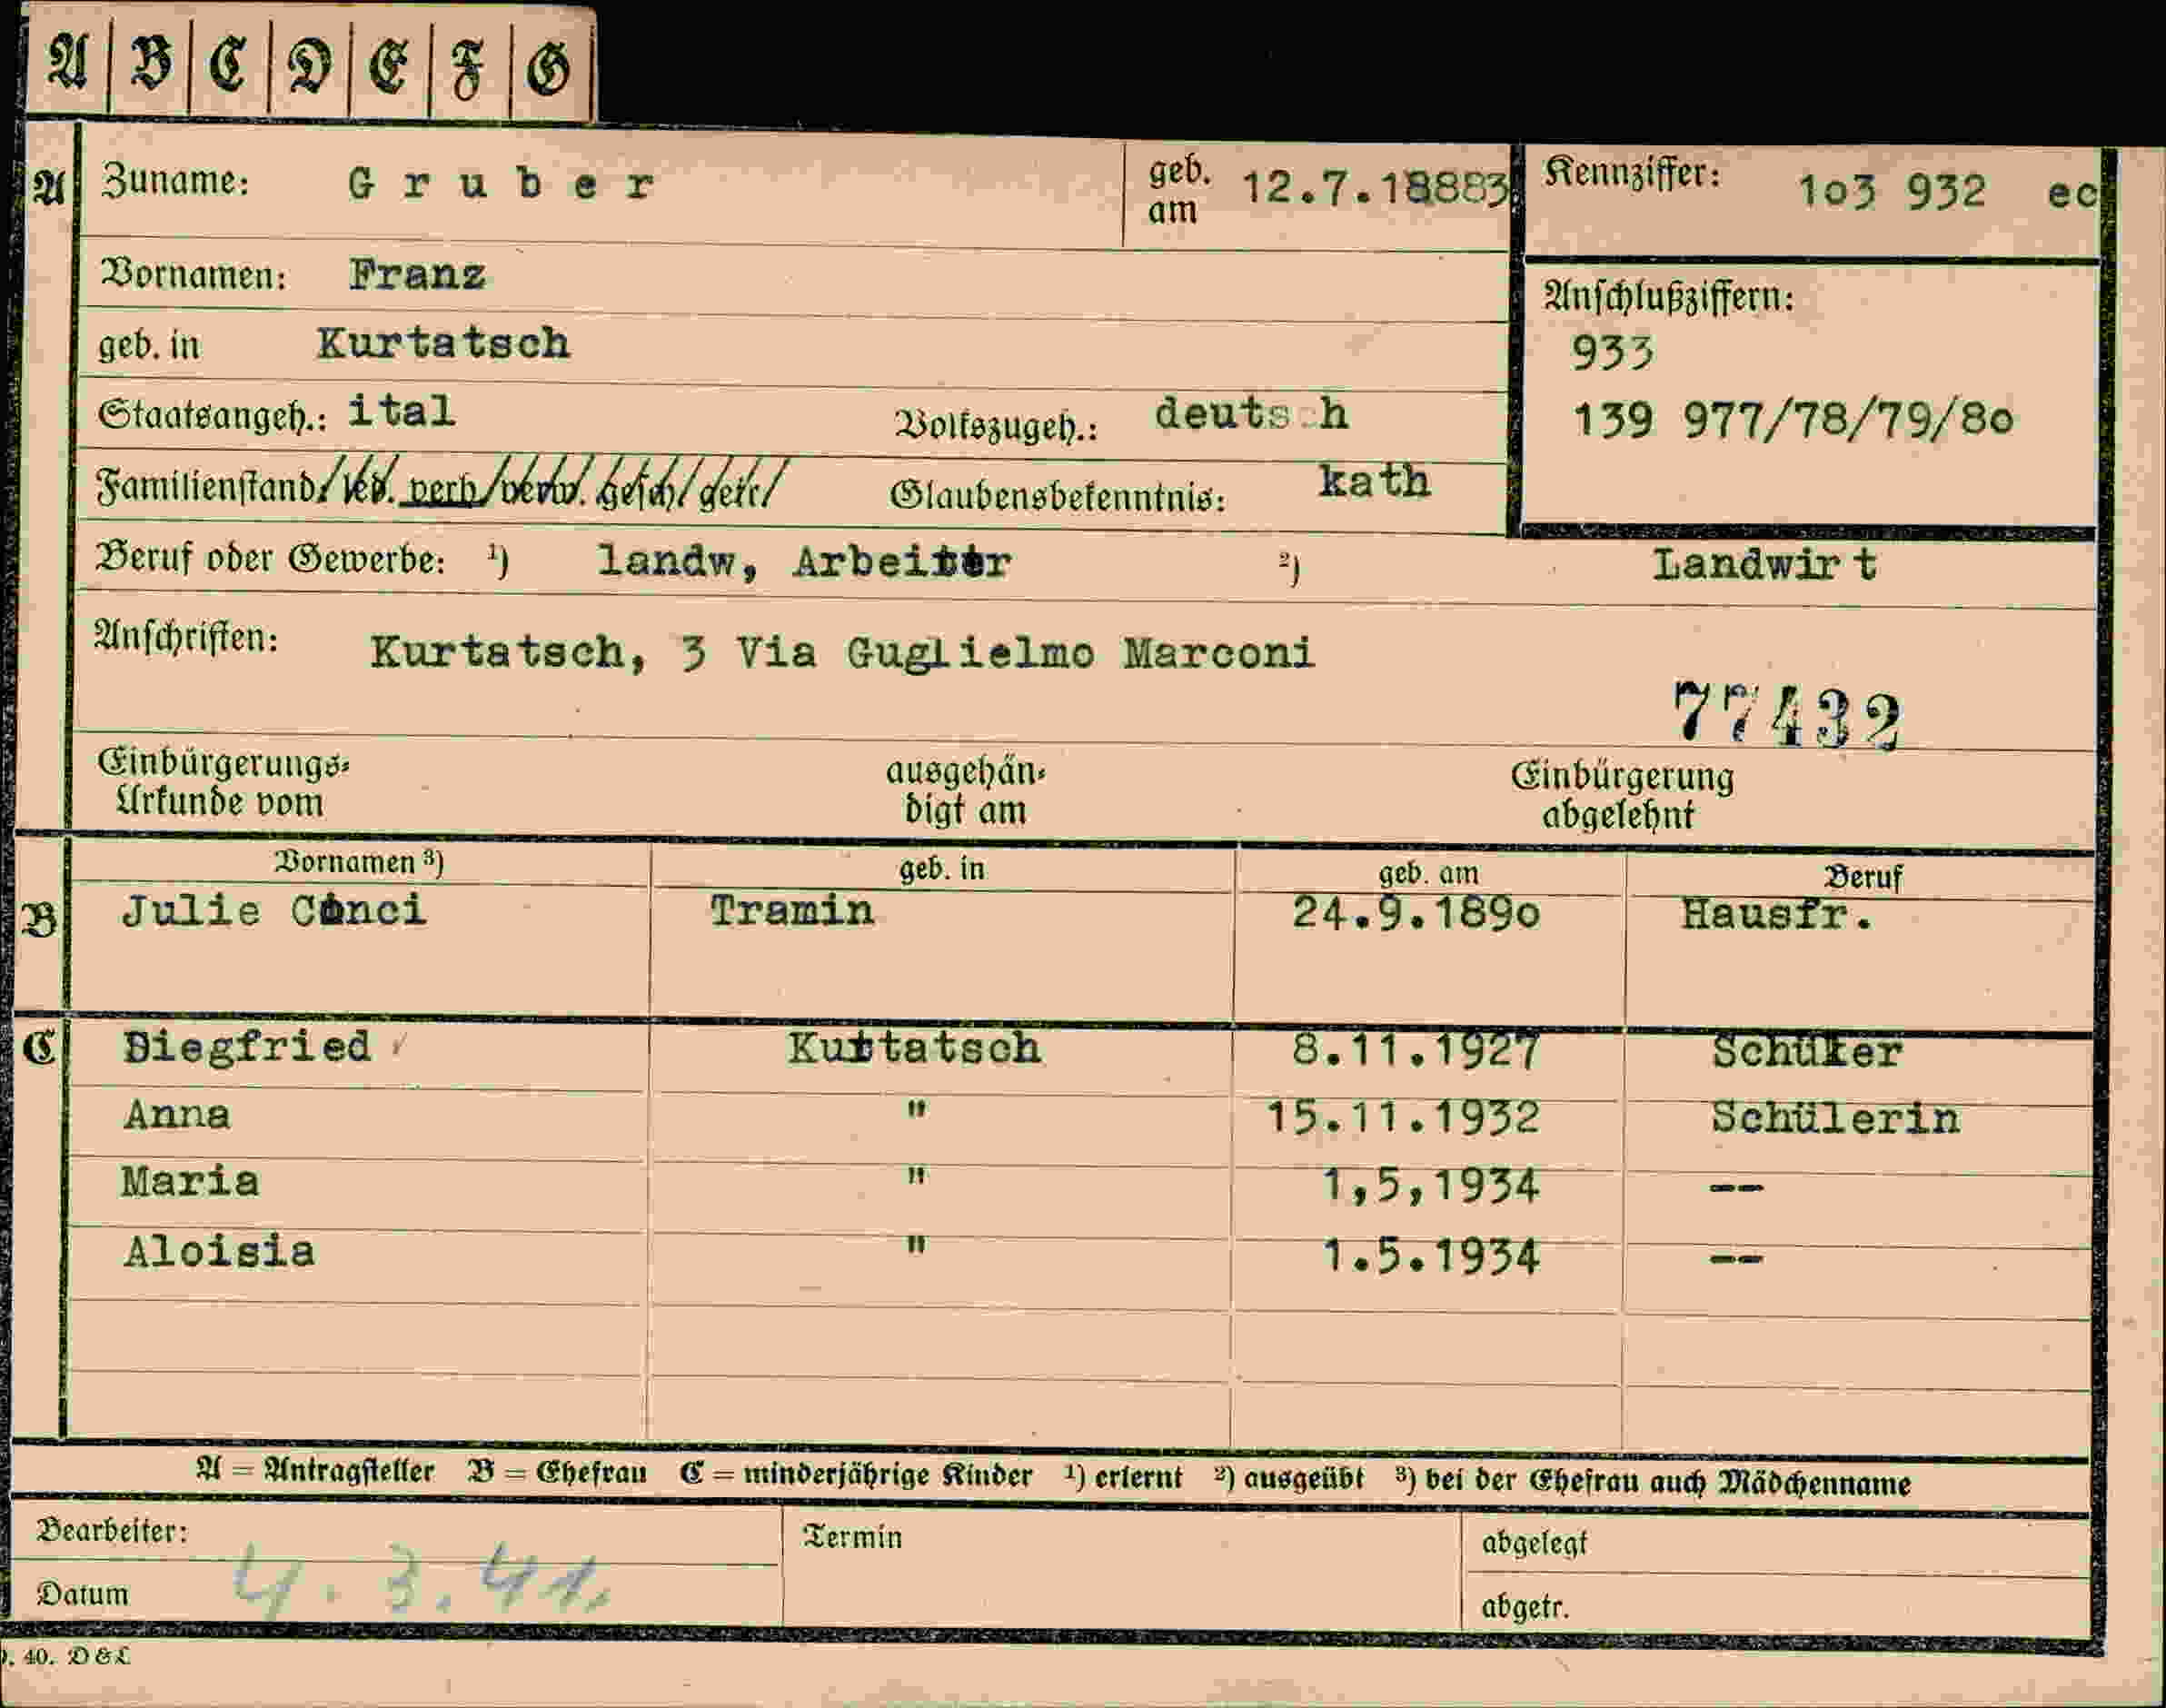 A B C D E F G
A Zuname: Gruber geb. am 12.7.18883 Kennziffer: 1o3 932 ec
Vornamen: Franz
Anschlußziffern:
geb. in Kurtatsch 933
Staatsangeh.: ital Volkszugeh.: deutsch 139 977/78/79/8o
Familienstand/led. verh/verw. gesch/getr/ Glaubensbekenntnis: kath
Beruf oder Gewerbe: ¹) landw, Arbeiter ²) Landwirt
Anschriften: Kurtatsch, 3 Via Guglielmo Marconi
77432
Einbürgerungs= ausgehän= Einbürgerung
Urkunde vom digt am abgelehnt
Vornamen ³) geb. in geb. am Beruf
B Julie Tramin 24.9.189o Hausfr.
C Siegfried Kurtatsch 8.11.1927 Schüler
Anna " 15.11.1932 Schülerin
Maria " 1,5,1934 --
Aloisia " 1.5.1934 --
A = Antragsteller B = Ehefrau C = minderjährige Kinder ¹) erlernt ²) ausgeübt ³) bei der Ehefrau auch Mädchenname
Bearbeiter: Termin abgelegt
Datum 4.3.41. abgetr.
. 40. D&L